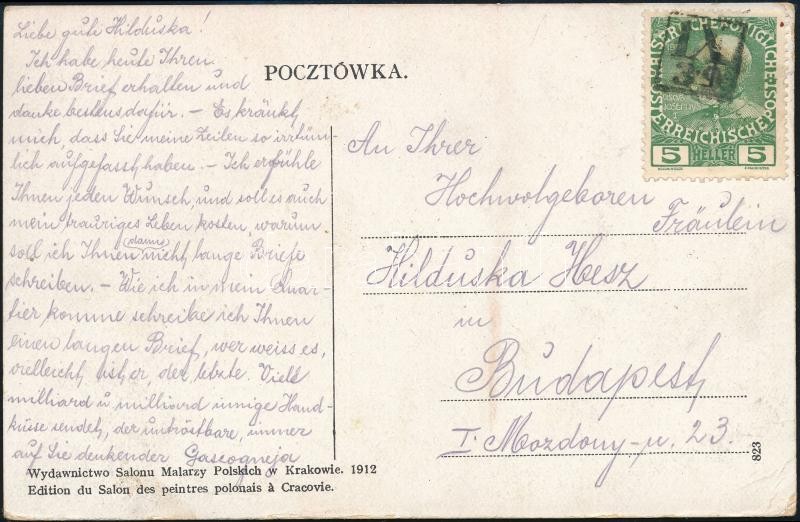 Liebe gute Hilduska!
Ich habe heute Ihren
lieben Brief erhalten und
danke bestens dafür. – Es kränkt
mich, dass Sie meine Zeilen so irrtüm-
lich aufgefasst haben. – Ich erfühle
Ihnen jeden Wunsch, und soll es auch
mein trauriges Leben kosten, warum
soll ich Ihnen dann nicht, lange Briefe
schreiben. – Wie ich in mein Quar-
tier komme schreibe ich Ihnen
einen langen Brief, wer weiss es,
vielleicht ist er, der letzte. Viele
milliard u milliard innige Hand-
küsse sendet, der untröstbare, immer
auf Sie denkender Gascogneja
POCZTÓWKA.
An Ihrer
Hochwolgeboren
Fräulein
Hilduska Hesz
in
Budapest,
I. Mozdony-u. 23.
KAISERLICHE KÖNIGLICHE POST
ÖSTERREICHISCHE
5 HELLER 5
IX
34
823
Wydawnictwo Salonu Malarzy Polskich w Krakowie. 1912
Edition du Salon des peintres polonais à Cracovie.